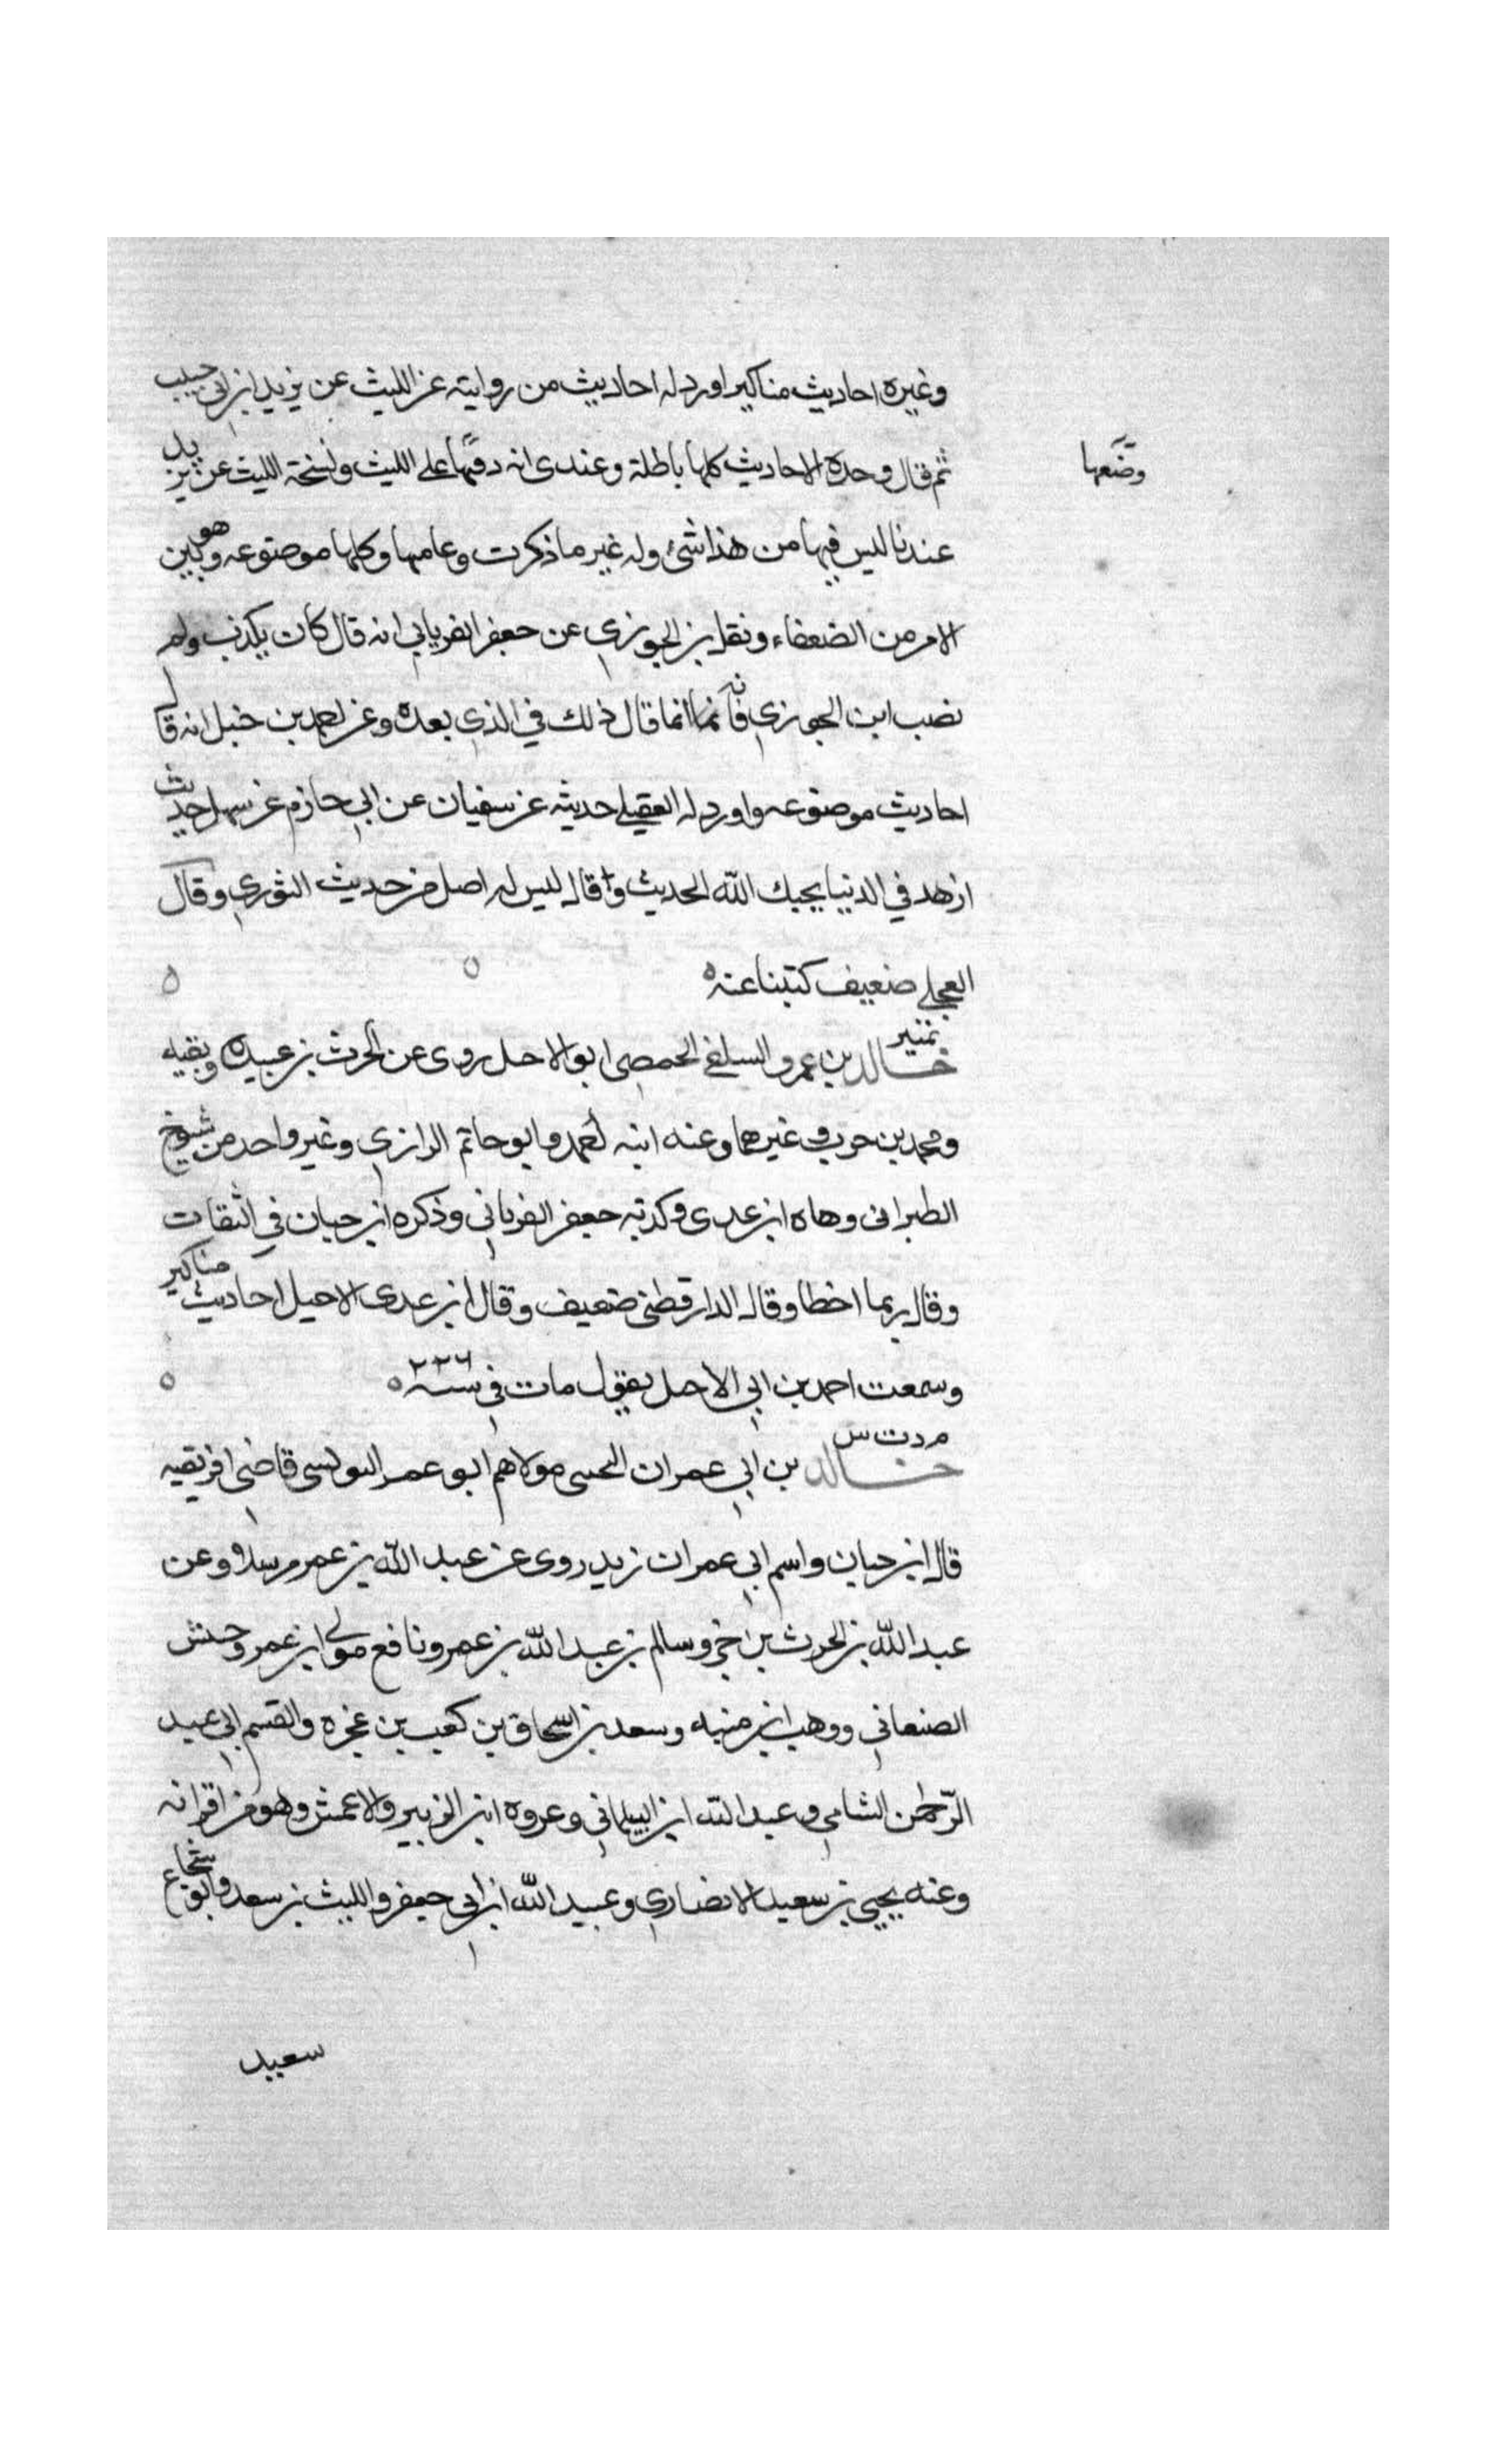 وغيره احاديث مناكير اورد له احاديث من روايته عن الليث عن يزيد ابن ابي حبيب
ثم قال وهذه الاحاديث كلها باطلة وعندى انه على الليث ونسخة الليث عن يزيد
وضعها
عندنا ليس فيها من هذا شئ وله غير ما ذكرت وعامها وكلها موضوعه وهو بين
الامر من الضعفاء ونقل بن الجوزي عن جعفر الفريابي انه قال كان يكذب ولم
نصب ابن الجوزي فانه انما قال ذلك في الذي بعده وعن احمد بن حنبل انه قال
احاديث موضوعه واورد له العقيلي حديثه عن سفيان عن ابي حازم عن سهل حديث
ازهد في الدنيا يحبك الله الحديث وقال ليس له اصل من حديث الثوري وقال
العجلي ضعيف كتبنا عنه ه
تمييز
خالد بن عمرو السلفي الحمصي ابو الاحل روى عن الحرث بن عبيده وبقيه
ومحمد بن حرب وغيرهما وعنه ابنه احمد وابو حاتم الرازي وغير واحد من شيوخ
الطبرانى وهاه ابن عدى وكذبه جعفر الفريابي وذكره ابن حبان في الثقات
وقال ربما اخطا وقال الدارقطنى ضعيف وقال ابن عدى لابي الاحيل احاديث مناكير
وسمعت احمد بن ابي الاحل يقول مات فى سنه ٢٣٦ ه
م د ت س
خالد بن ابي عمران التجيبى مولاهم ابو عمر التونسى قاضى افريقيه
قال ابن حبان واسم ابي عمران زيد روى عن عبد الله بن عمر مرسلا وعن
عبد الله بن الحرث بن جزء وسالم بن عبد الله بن عمر ونافع مولى ابن عمر وحنش
الصنعاني ووهب ابن منبه وسعد بن اسحاق بن كعب بن عجره والقسم ابي عبد
الرحمن الشامي وعبد الله ابن البيلماني وعروه ابن الزبير والاعمش وهو من اقرانه
وعنه يحيي بن سعيد الانصاري وعبيد الله ابن ابي جعفر والليث بن سعد وابو شجاع
سعيد